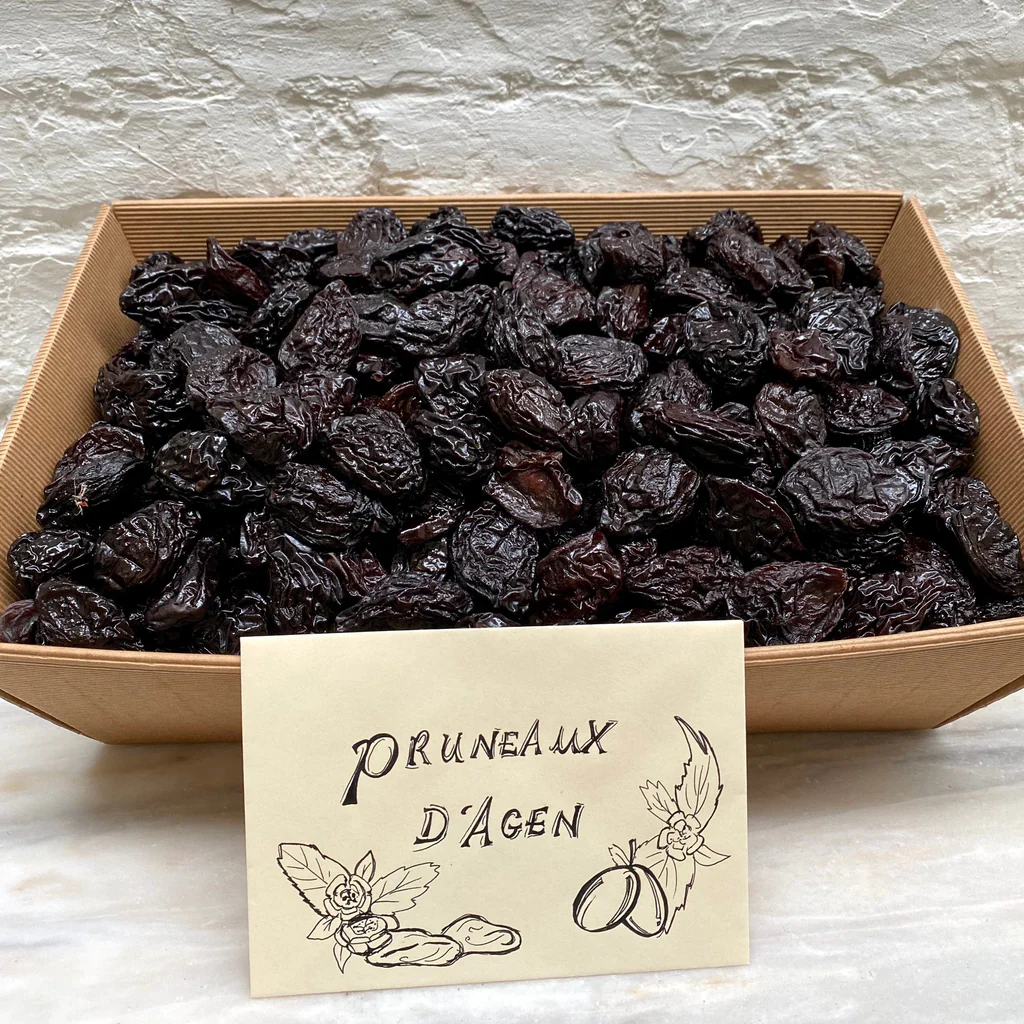 PRUNEAUX
D'AGEN